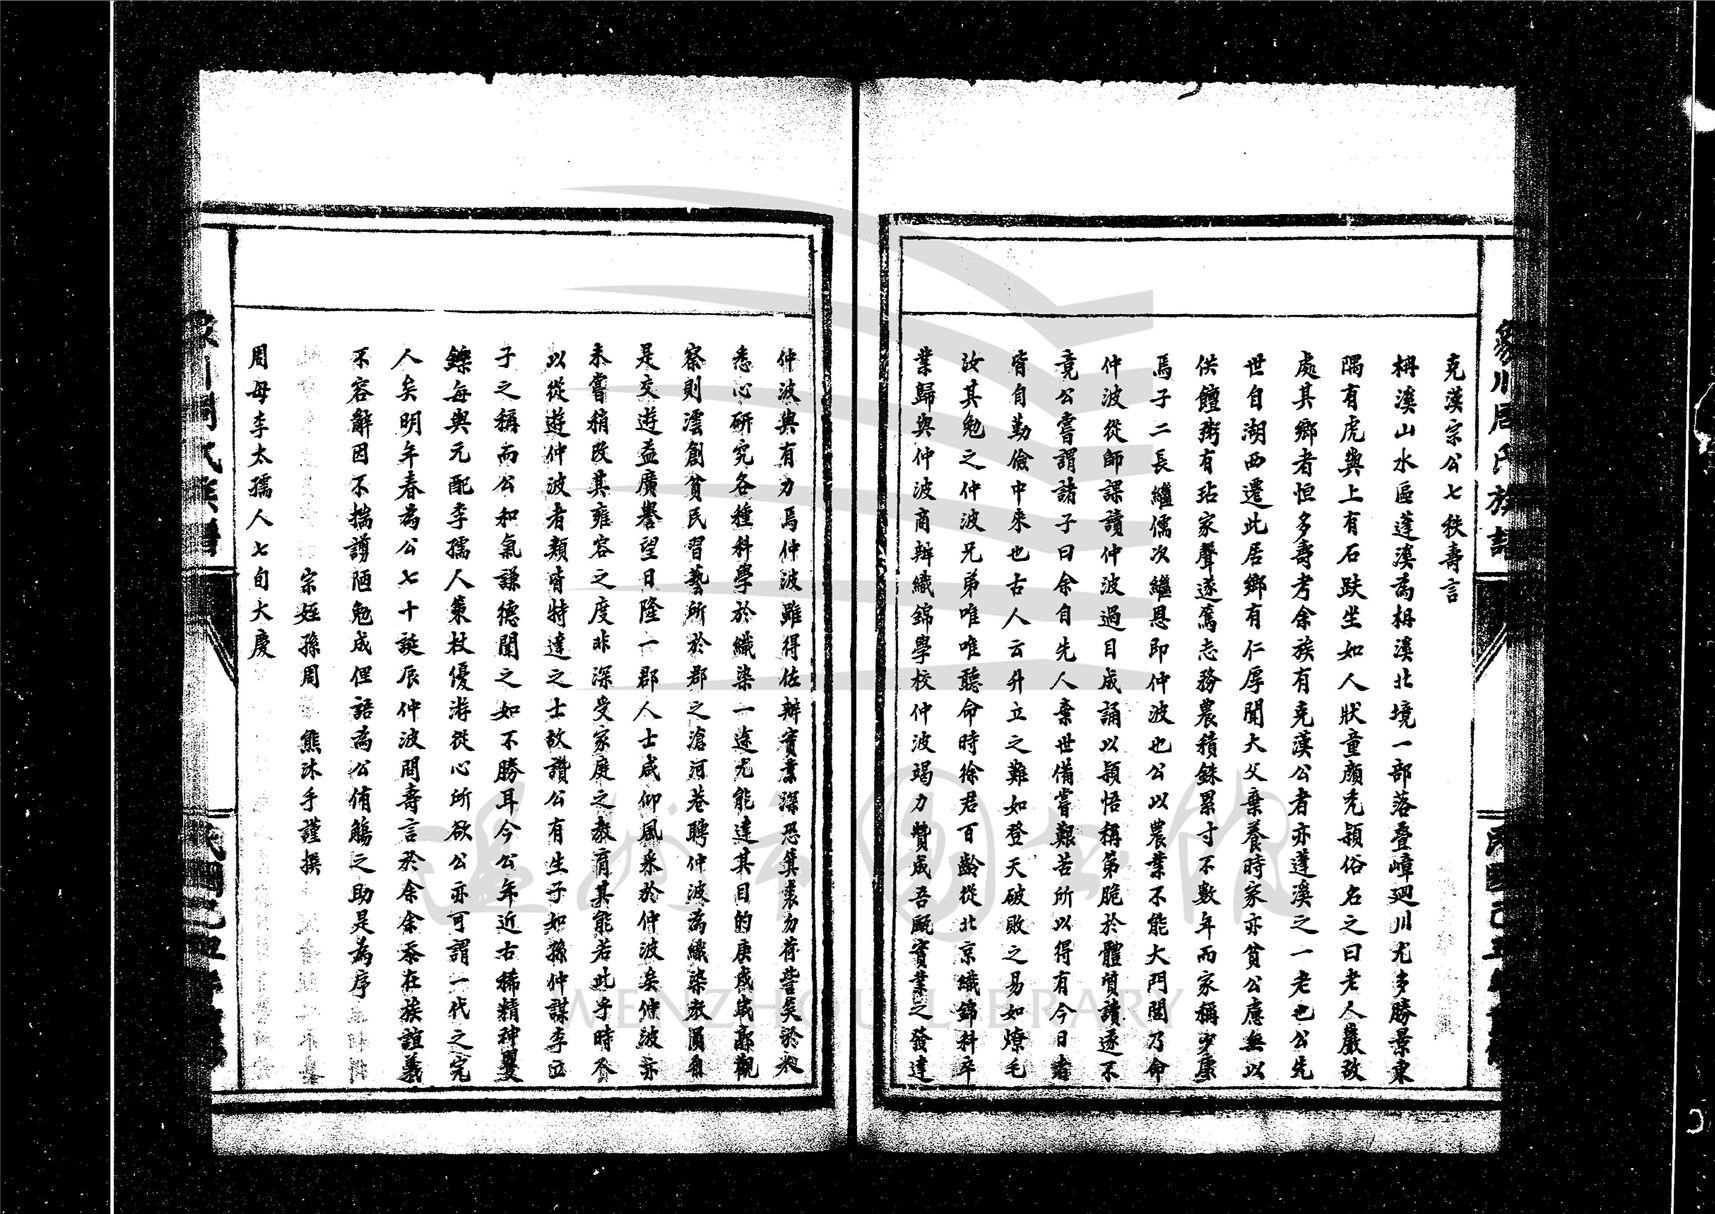 克漢宗公七秩壽言
枬溪山水區蓬溪為枬溪北境一部落疊嶂廻川尤多勝景東
隅有虎與上有石趺坐如人狀童顏禿頴俗名之曰老人巖故
處其鄉者恒多壽考余族有克漢公者亦蓬溪之一老也公先
世自湖西遷此居鄉有仁厚聞大父棄養時家亦貧公應無以
供饘粥有玷家聲遂篤志務農積銖累寸不數年而家稱少康
焉子二長繼儒次繼恩即仲波也公以農業不能大門閭乃命
仲波從師課讀仲波過目成誦以頴悟稱第脆於體質讀遂不
竟公嘗謂諸子曰余自先人棄世備嘗艱苦所以得有今日者
皆自勤儉中來也古人云升立之難如登天破敗之易如燎毛
汝其勉之仲波兄弟唯唯聽命時徐君百齡從北京織錦科卒
業歸與仲波商辦織錦學校仲波竭力贊成吾甌實業之發達
仲波與有力焉仲波雖得佐辦實業深恐箕裘勿荷訾矣於是
悉心研究各種科學於織染一途尤能達其目的庚戌歲親觀
察則澐創貧民習藝所於郡之滄河巷聘仲波為織染教員自
是交遊益廣譽望日隆一郡人士咸仰風采於仲波矣仲波亦
未嘗稍改其雍容之度非深受家庭之教育其能若此乎時余
以從遊仲波者類皆特達之士故讚公有生子如孫仲謀李亞
子之稱而公和氣謙德聞之如不勝耳今公年近古稀精神矍
鑠每與元配李孺人策杖優游從心所欲公亦可謂一代之完
人矣明年春為公七十誕辰仲波問壽言於余余忝在族誼義
不容辭因不揣譾陋勉成俚語為公侑觴之助是為序
宗姪孫周　熊沐手謹撰
周母李太孺人七旬大慶